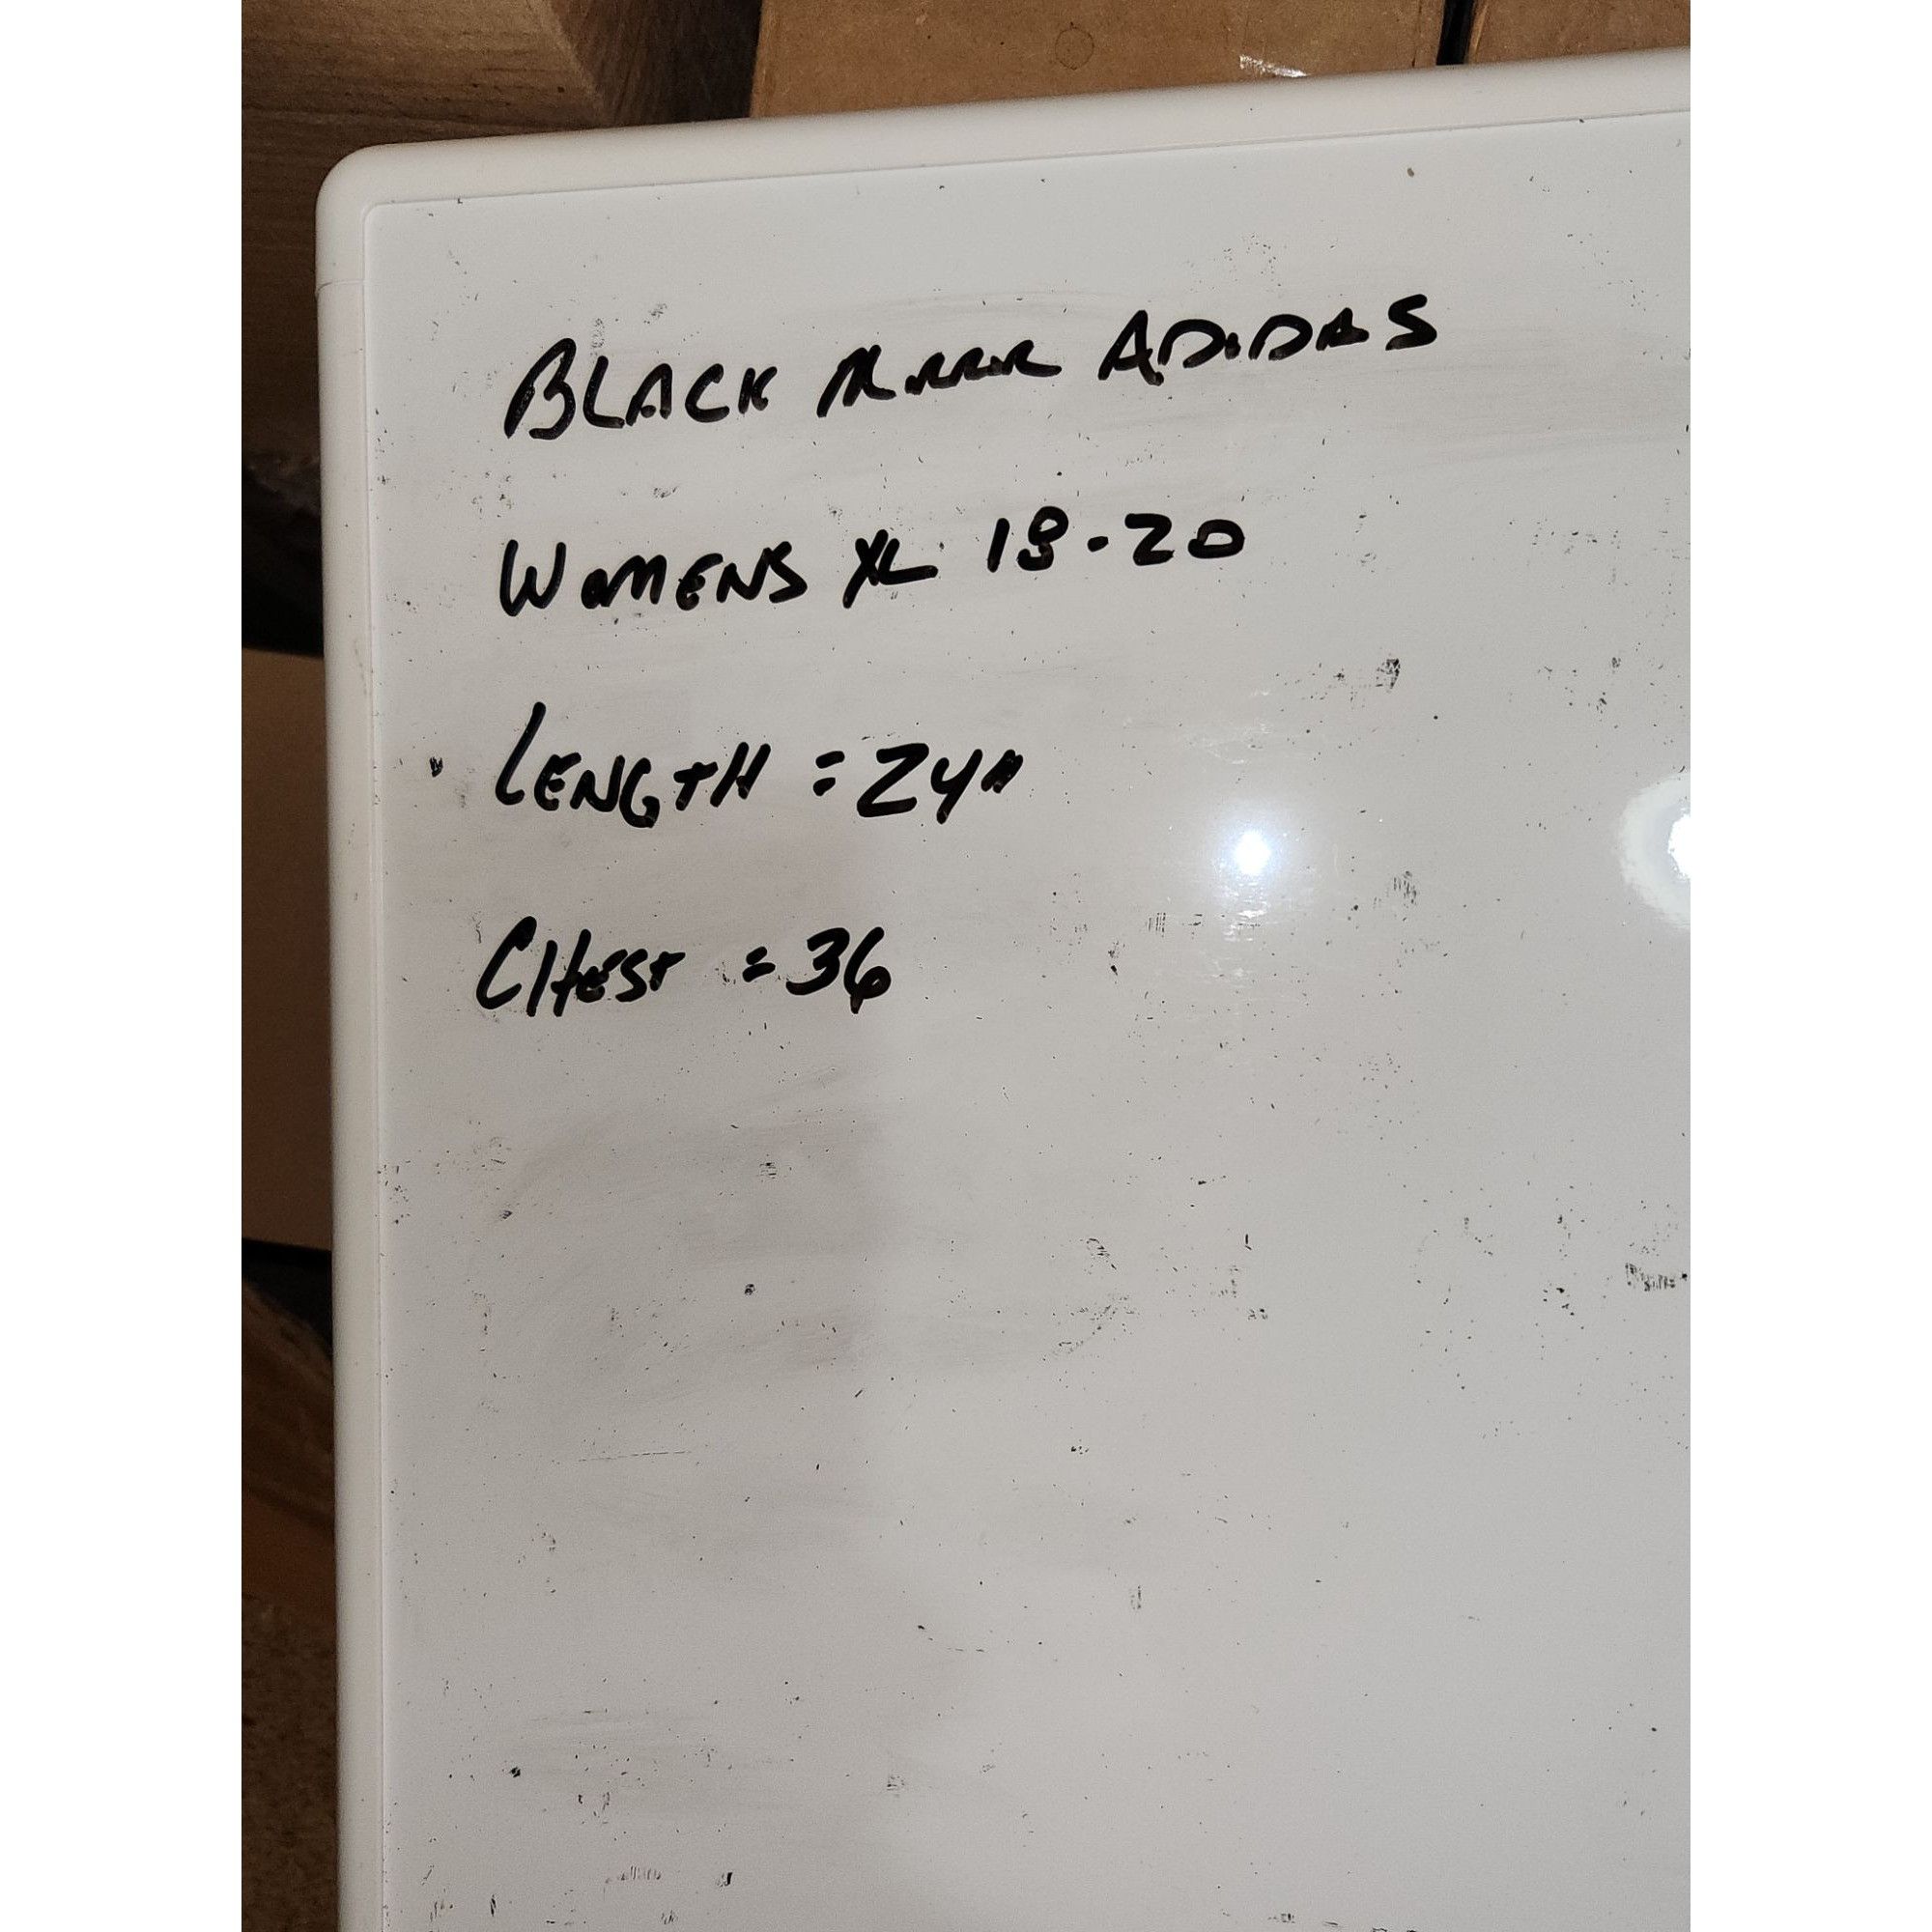 BLACK ADIDAS
WOMENS XL 18-20
LENGTH = 24"
CHEST = 36